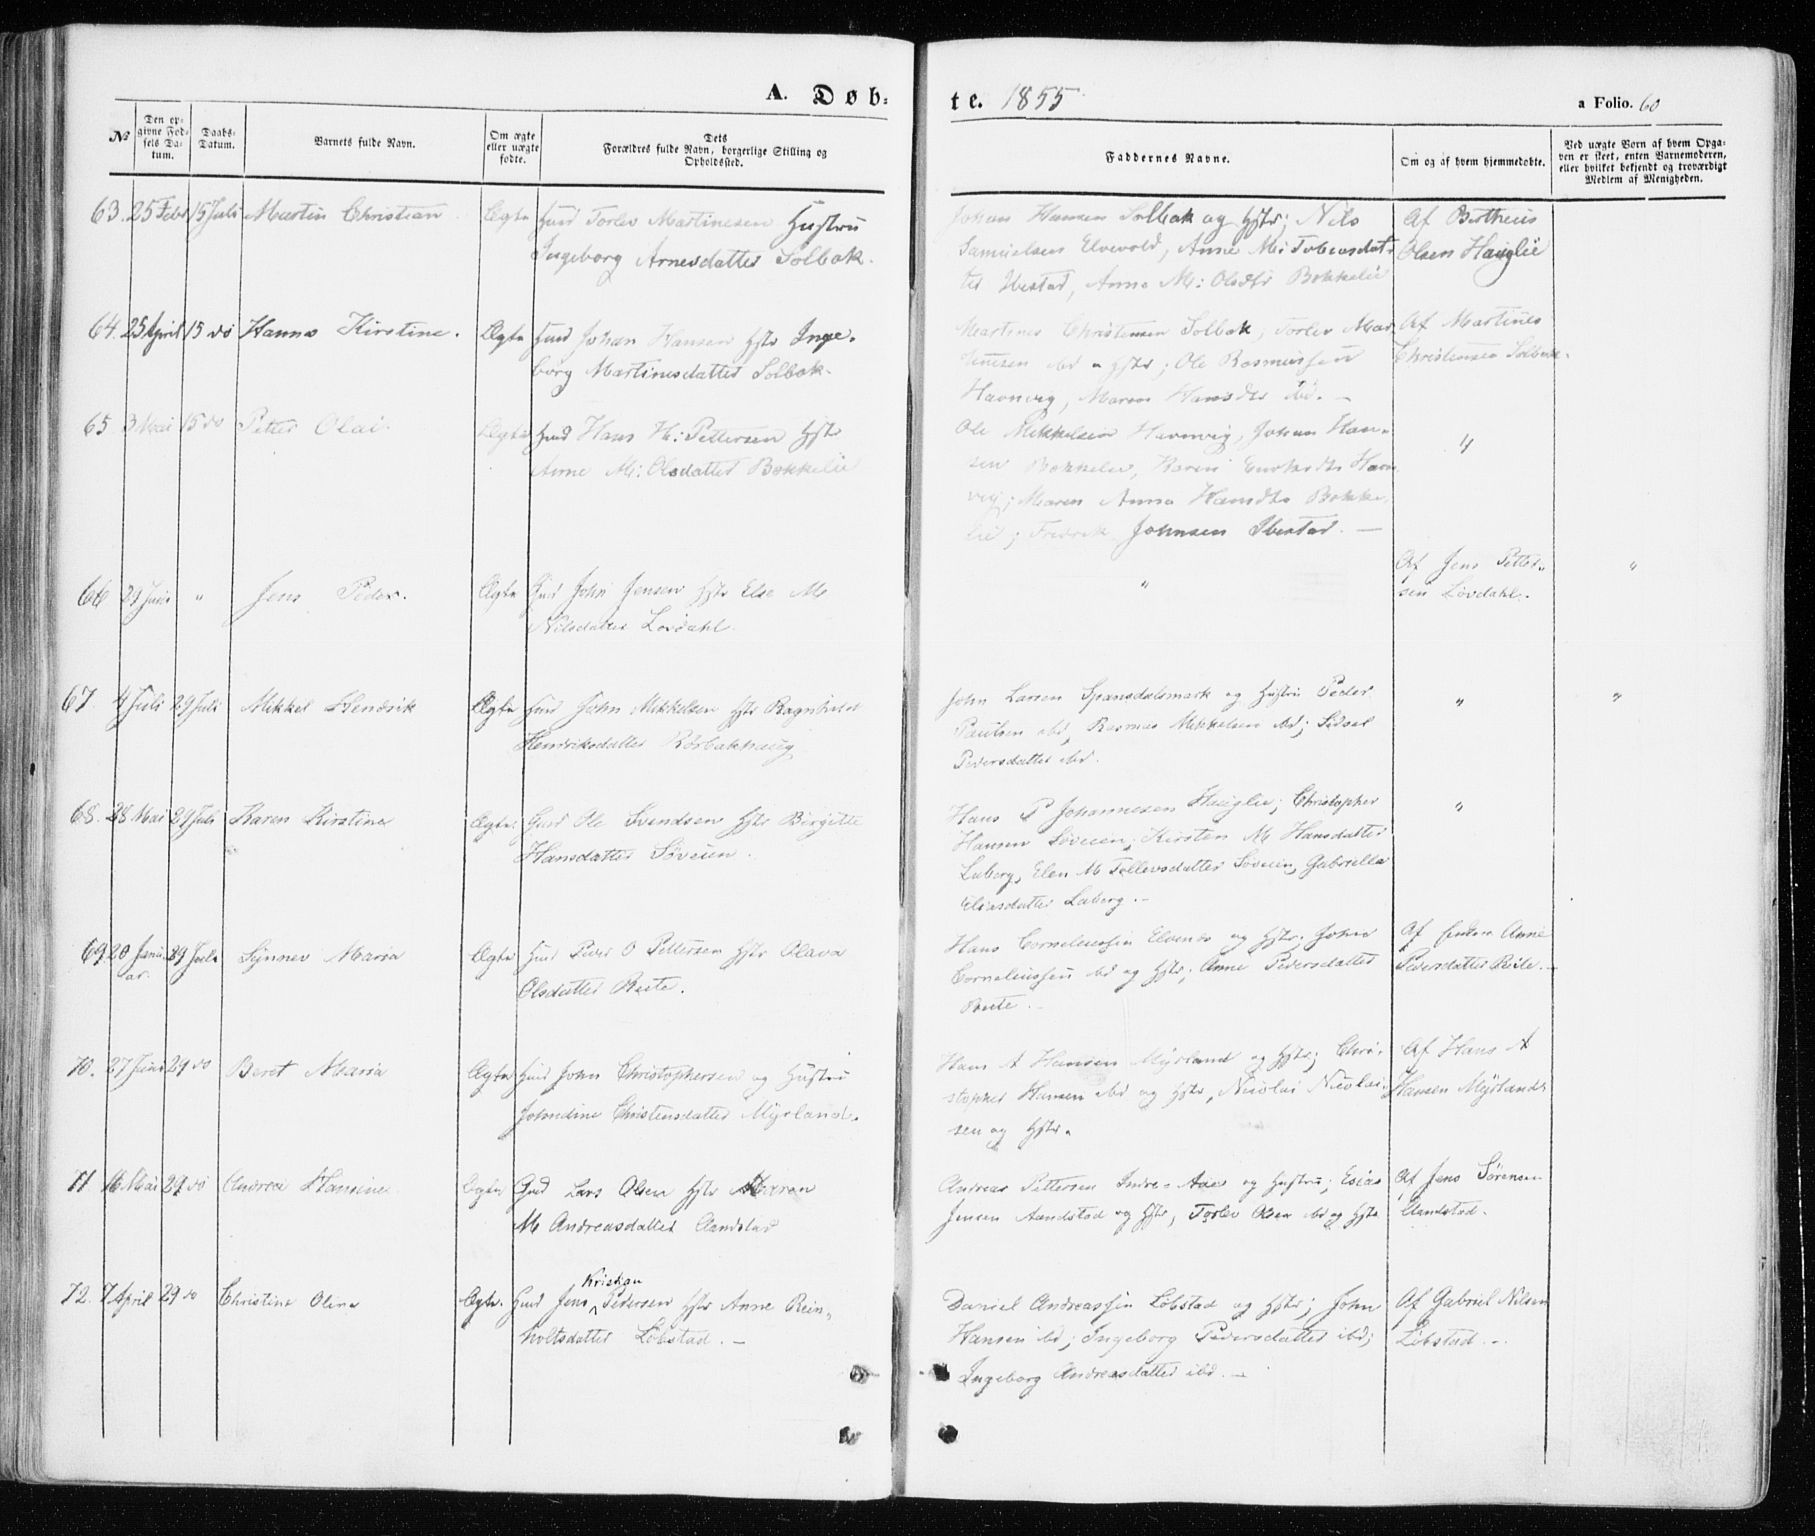 A. Døb-
te. 1855
a Folio. 60
№
Den op-
givne Fød-
sels Da-
tum.
Daabs-
Datum.
Barnets fulde Navn.
Om ægte
eller uægte
fødte.
Dets
Forældres fulde Navn, borgerlige Stilling og
Opholdssted.
Faddernes Navne.
Om og af hvem hjemmedøbte.
Ved uægte Børn af hvem Opga-
ven er skeet, enten Barnemoderen,
eller hvilket bekjendt og troværdigt
Medlem af Menigheden.
63. 25 Febr 15 Juli Martin Christian Ægte Huusmd Torlev Martinesen Hustru
Ingeborg Arnesdatter Solbak.
Johan Hansen Solbak og Hstr; Nils
Samuelsen Elvevold, Anne M: Tobiasdat-
ter Ibestad, Anne M: Olsdtr Bokkelie
Af Bertheus
Olsen Hauglie
64. 25 April 15 do Hanna Kirstine. Ægte Johan Hansen Hstr Inge-
borg Martinesdatter Solbak.
Martines Christensen Solbak, Torlev Mar-
tinesen ibd og Hstr; Ole Rasmussen
Havnvig, Maren Hansdtr ibd. –
Af Martines
Christensen Solbak.
65. 3 Mai 15 do Petter Olai. Ægte Hans H: Pettersen Hstr
Anne M: Olsdatter Bokkelie
Ole Mikkelsen Havnvig, Johan Han-
sen Bokkelie, Karen Havn-
vig; Maren Anna Hansdtr Bokke-
lie; Fredrik Johnsen Ibestad. –
"
66 29 Juni " Jens Peder. Ægte John Jensen Hstr Else M
Nilsdatter Løvdahl.
"
Af Jens Petter-
sen Løvdahl.
"
67. 4 Juli 29 Juli Mikkel Hendrik Ægte John Mikkelsen Hstr Ragnhild
Henriksdatter Rørbakhaug
John Larsen Spansdalsmark og Hustru Peder
Paulsen ibd, Rasmus Mikkelsen ibd; Sidsel
Pedersdatter ibd.
"
"
68. 28 Mai 29 Juli Karen Kirstine Ægte. Ole Svendsen Hstr Birgitte
Hansdatter Søveien.
Hans P Johannesen Hauglie; Christopher
Hansen Søveien; Kirsten M Hansdatter
Laberg, Elen M Tollevsdatter Søveien, Gabriella
Eliasdatter Laberg. –
"
69 20 Janu-
ar. 29 Juli Synnev Maria Ægte Peder O Pettersen Hstr Olava
Olsdatter Beite.
Hans Corneliussen Elvenes og Hstr. John
Corneliussen ibd og Hstr; Anne Pedersdatter
Beite –
Af Anne
Pedersdatter Beite. –
70. 27 Juni 29 do Beret Maria Ægte John Christophersen og Hustru
Johndine Christensdatter Myrland.
Hans A Hansen Myrland og Hstr; Chri-
stopher Hansen ibd og Hstr, Nicolai Nicolai-
sen og Hstr.
Af Hans A
Hansen Myrland
71 16 Mai 29 do Andrea Hansine Ægte Lars Olsen Hstr Maren
M Andreasdatter Aandstad
Andreas Pettersen Indre-Aae og Hustru; Esias
Jensen Aandstad og Hstr, Torlev Olsen ibd og Hstr
Af Jens Sørensen
Aandstad.
72. 7 April 29 do Christine Oline Ægte. Jens Kristian Pedersen Hstr Anne Rein-
holtsdatter Løbstad. –
Daniel Andreassen Løbstad og Hstr; John
Hansen ibd; Ingeborg Pedersdatter ibd;
Ingeborg Andreasdatter ibd. –
Af Gabriel Nilsen
Løbstad. –